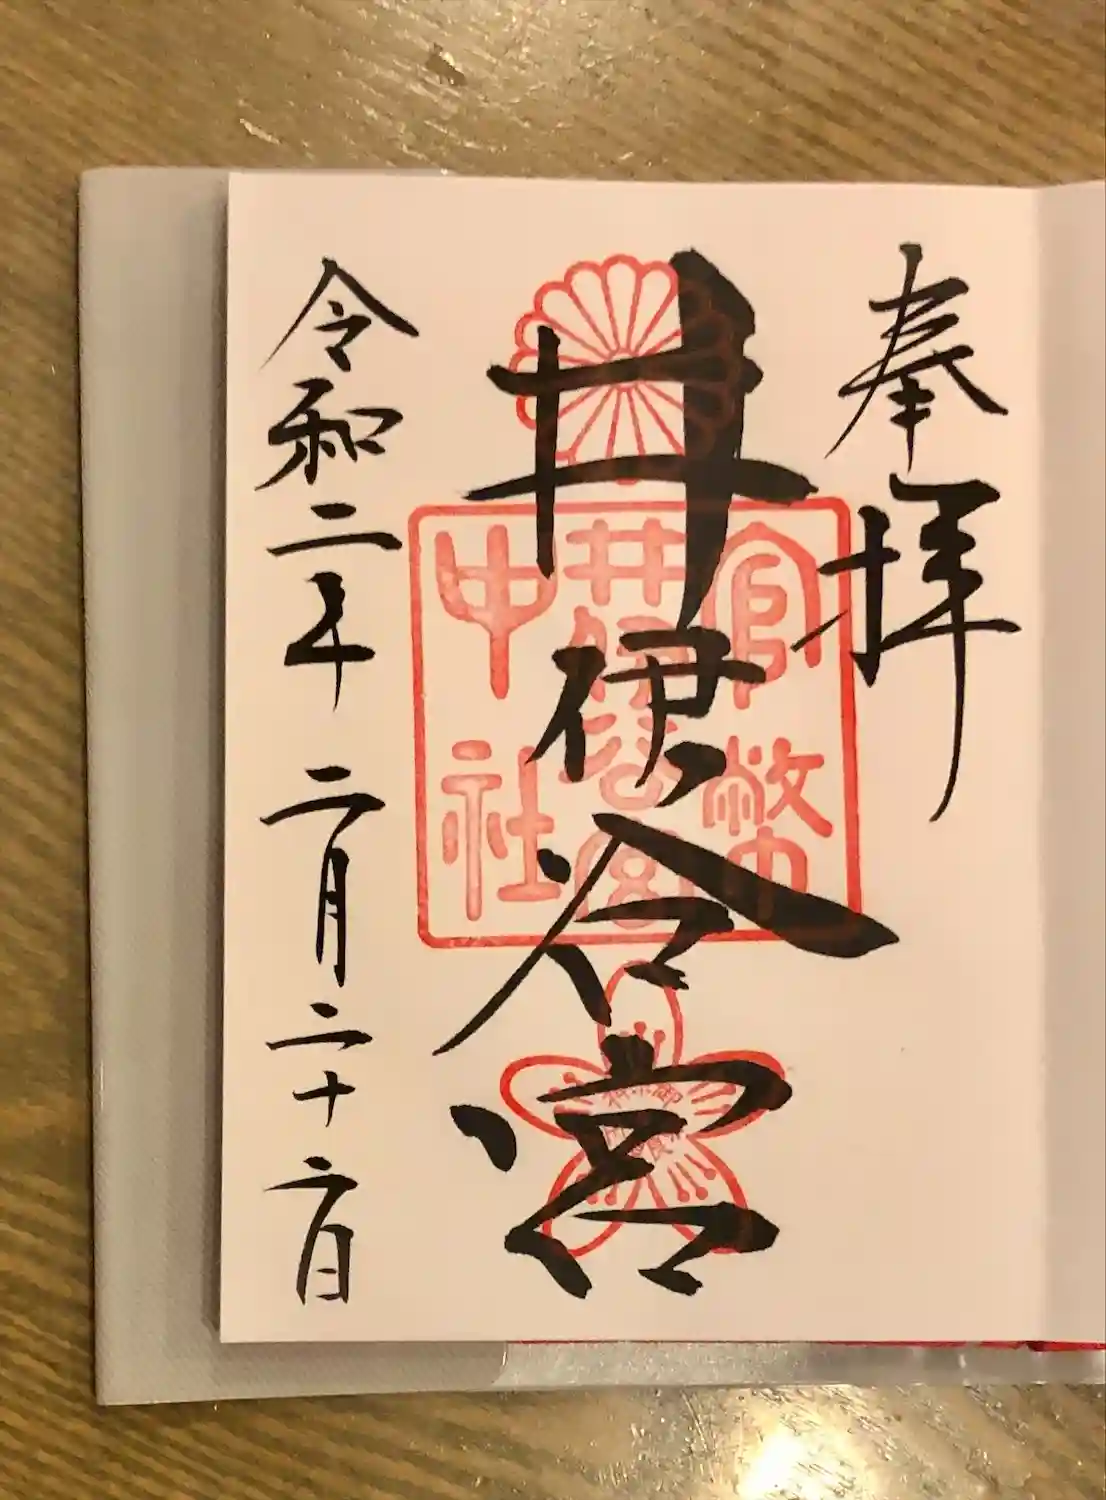 奉拝
井伊谷宮
官幣
井伊谷宮
中社
令和二年二月二十二日